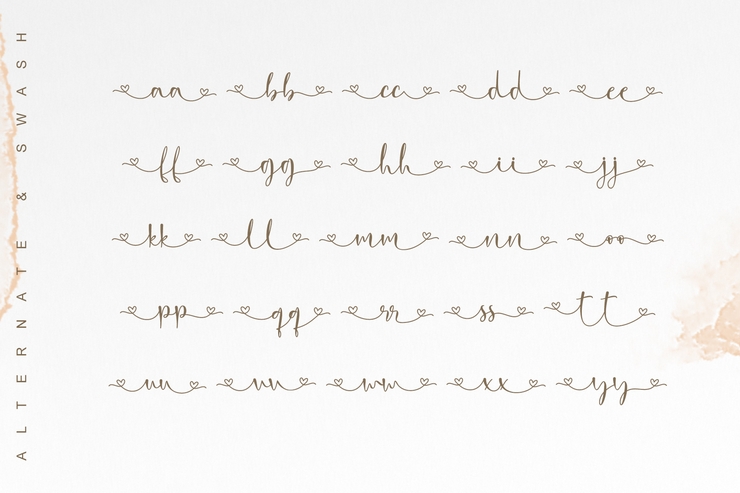 ALTERNATE & SWASH
aa bb cc dd ee
ff gg hh ii jj
kk ll mm nn oo
pp qq rr ss tt
uu vv ww xx yy